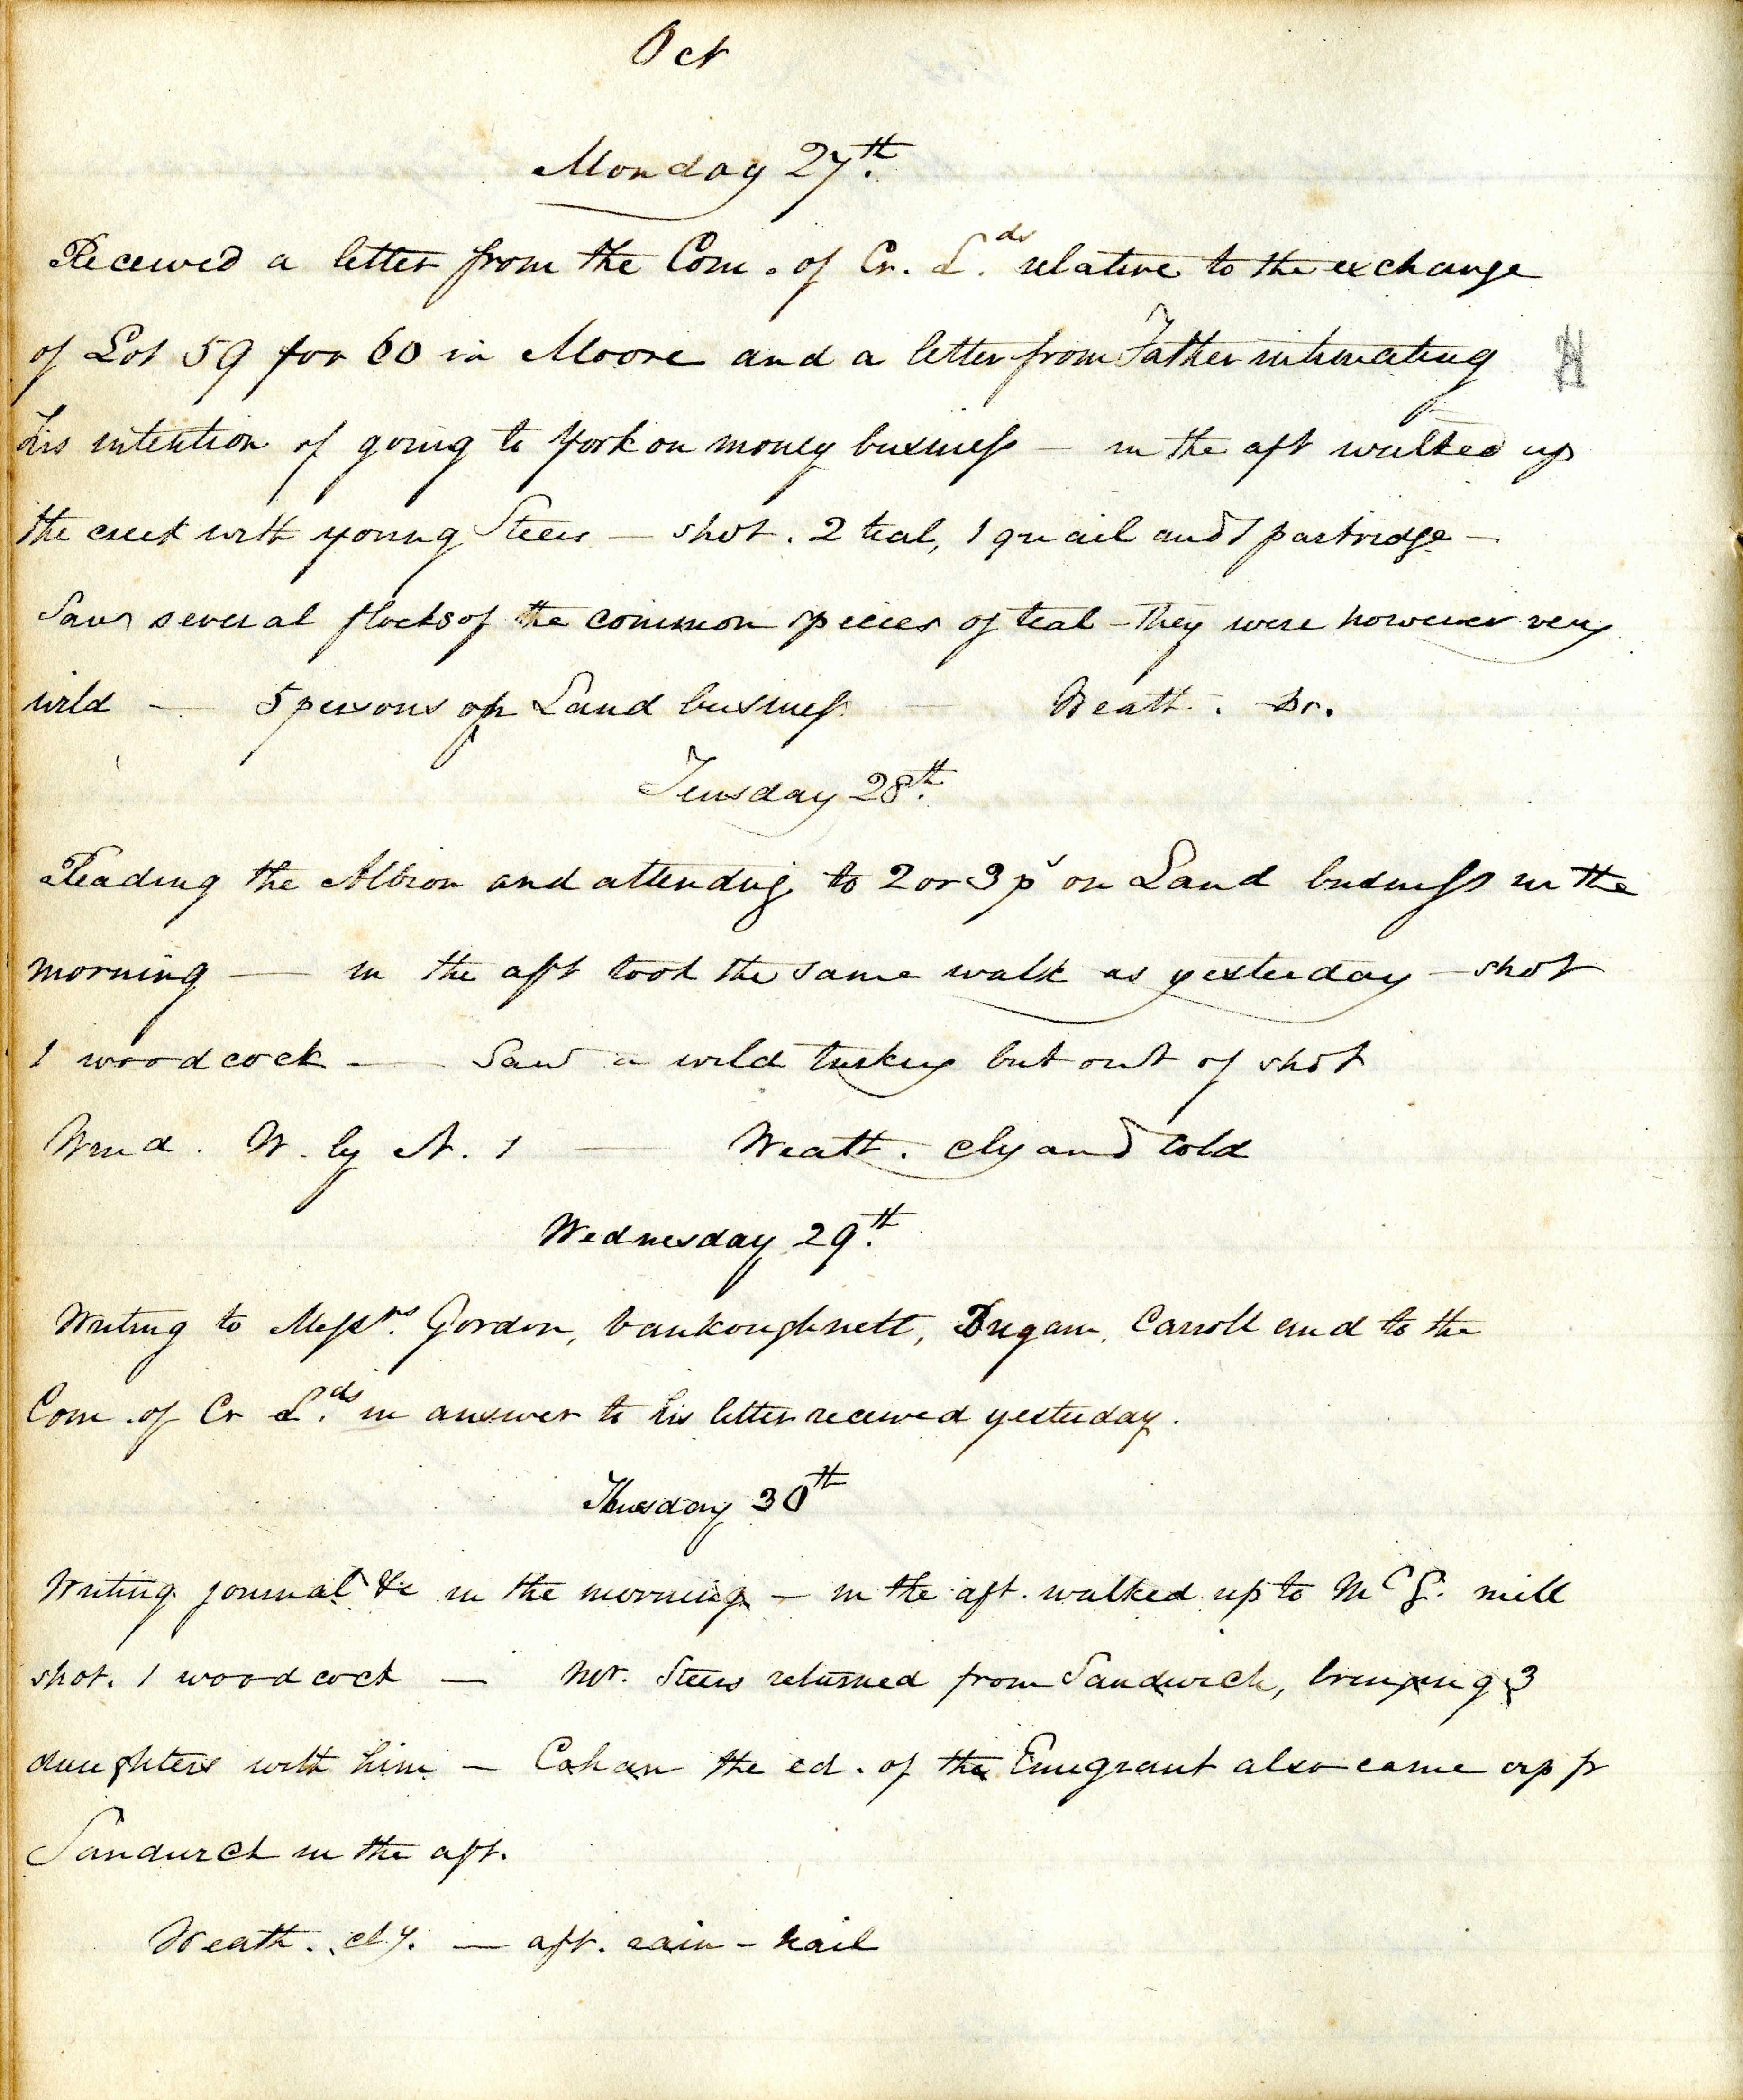 Oct
Monday 27th.
Received a letter from the Com. of Cr. Lds. relative to the exchange
of Lot 59 for 60 in Moore and a letter from Father intimating
his intention of going to York on money business — in the aft walked up
the creek with young Steers — shot. 2 teal, 1 quail and 1 partridge —
Saw several flocks of the common species of teal — They were however very
wild — 5 persons on Land business — Weath. Dr.
Tuesday 28th.
Reading the Albion and attending to 2 or 3 ps on Land business in the
morning — in the aft took the same walk as yesterday — shot
1 woodcock — Saw a wild turkey but out of shot
Wind. W. by N. 1 — Weath. cly and cold
Wednesday 29th.
Writing to Messrs. Gordon, Vankoughnett, Dugam, Carroll and to the
Com. of Cr Lds. in answer to his letter received yesterday.
Thursday 30th
Writing journal &c in the morning — in the aft. walked up to McG. mill
shot. 1 woodcock — Mr. Steers returned from Sandwich, bringing 3
daughters with him — Cohan the ed. of the Emigrant also came up fr
Sandwich in the aft.
Weath. cly. — aft. rain — hail